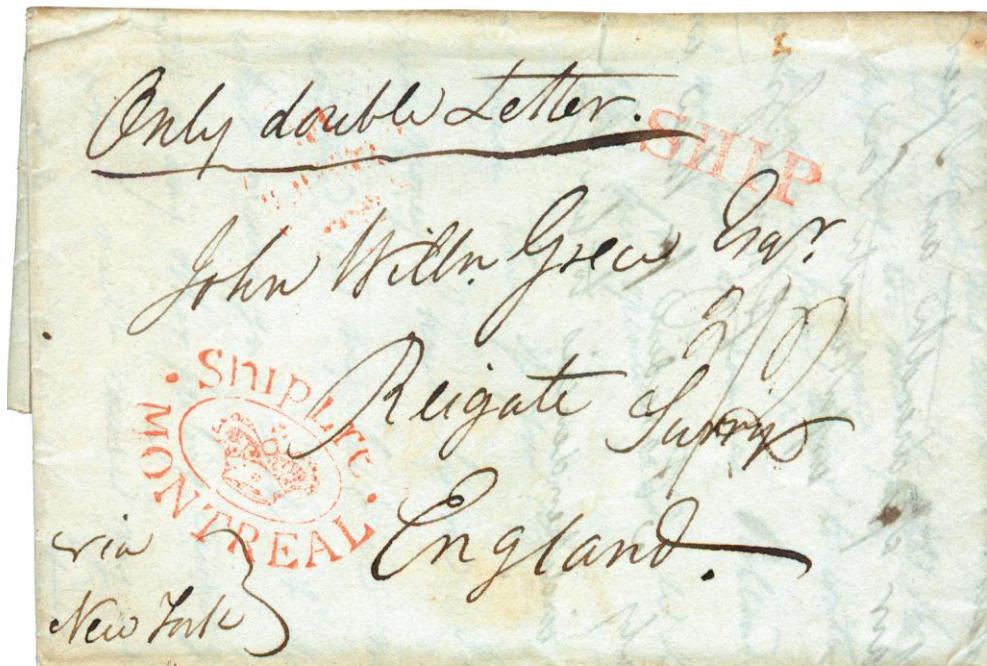 Only double Letter.
SHIP
John Willn. Grece Esqr.
Reigate Surry
England.
SHIP Lre
MONTREAL
via
New York